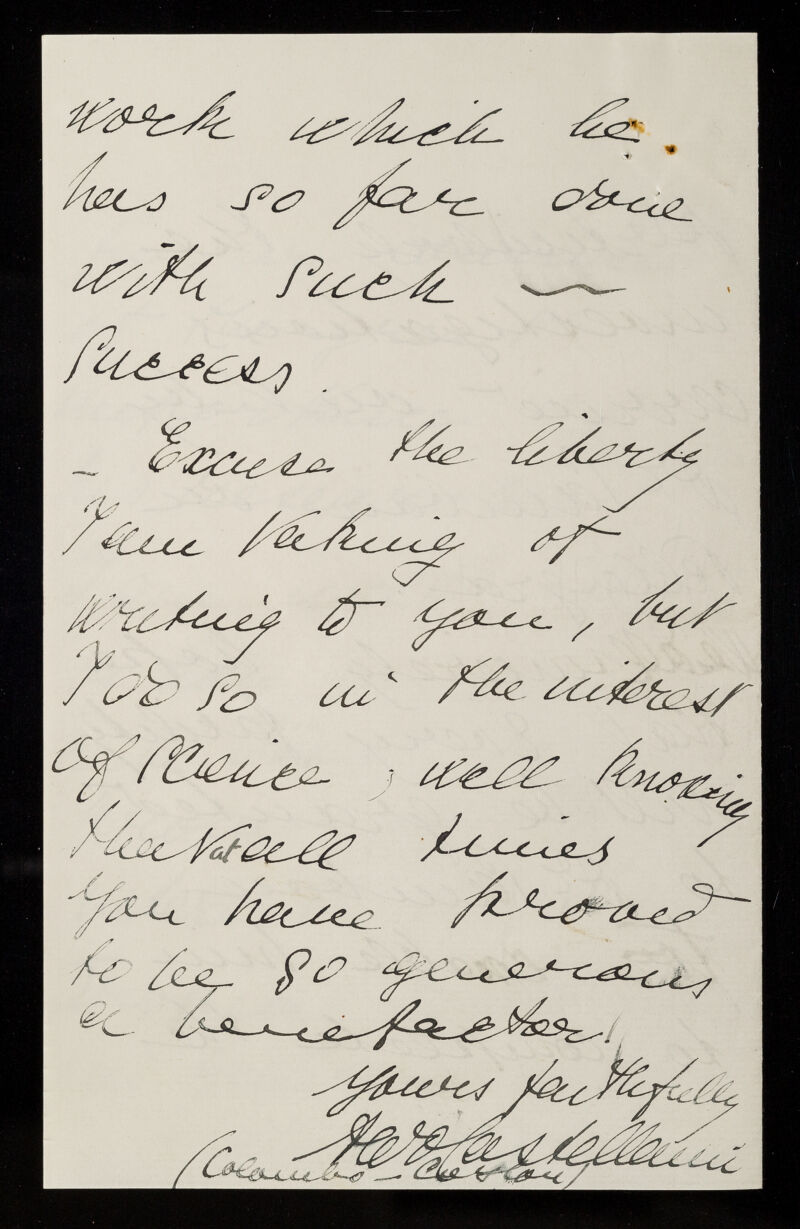 work which he
has so far done
with such ~
success.
– Excuse the liberty
I am taking of
writing to you, but
I do so in the interest
of science, well knowing
that at all times
you have proved
to be so generous
a benefactor!
Yours faithfully
Aldo Castellani
(Colombo – Ceylon)